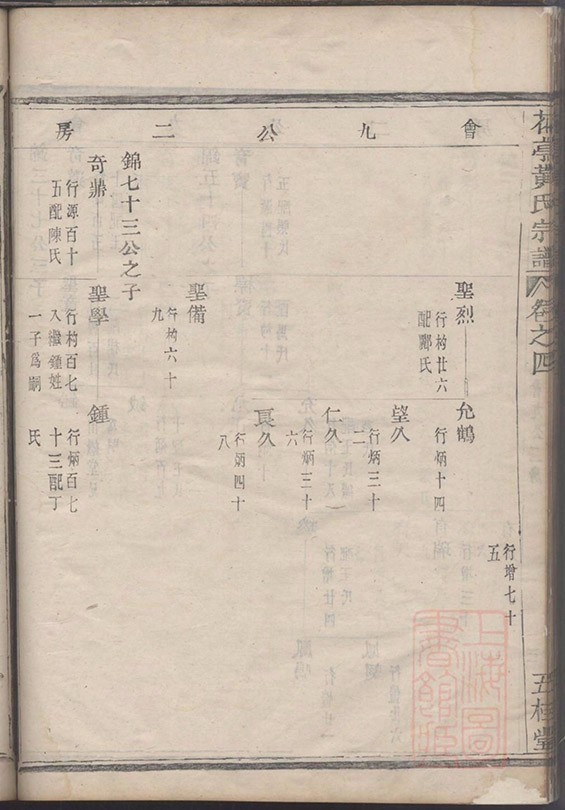 黃氏宗譜
卷之四
五桂堂
會九公二房
行增七十
五
聖烈
行杓廿六
配酈氏
允鶴
行炳十四
望久
行炳三十
二
仁久
行炳三十
六
良久
行炳四十
八
聖備
行杓六十
九
錦七十三公之子
奇鼎
行源百十
五配陳氏
聖學
行杓百七
入繼鍾姓
一子爲嗣
鍾
行炳百七
十三配丁
氏
上海圖書館藏